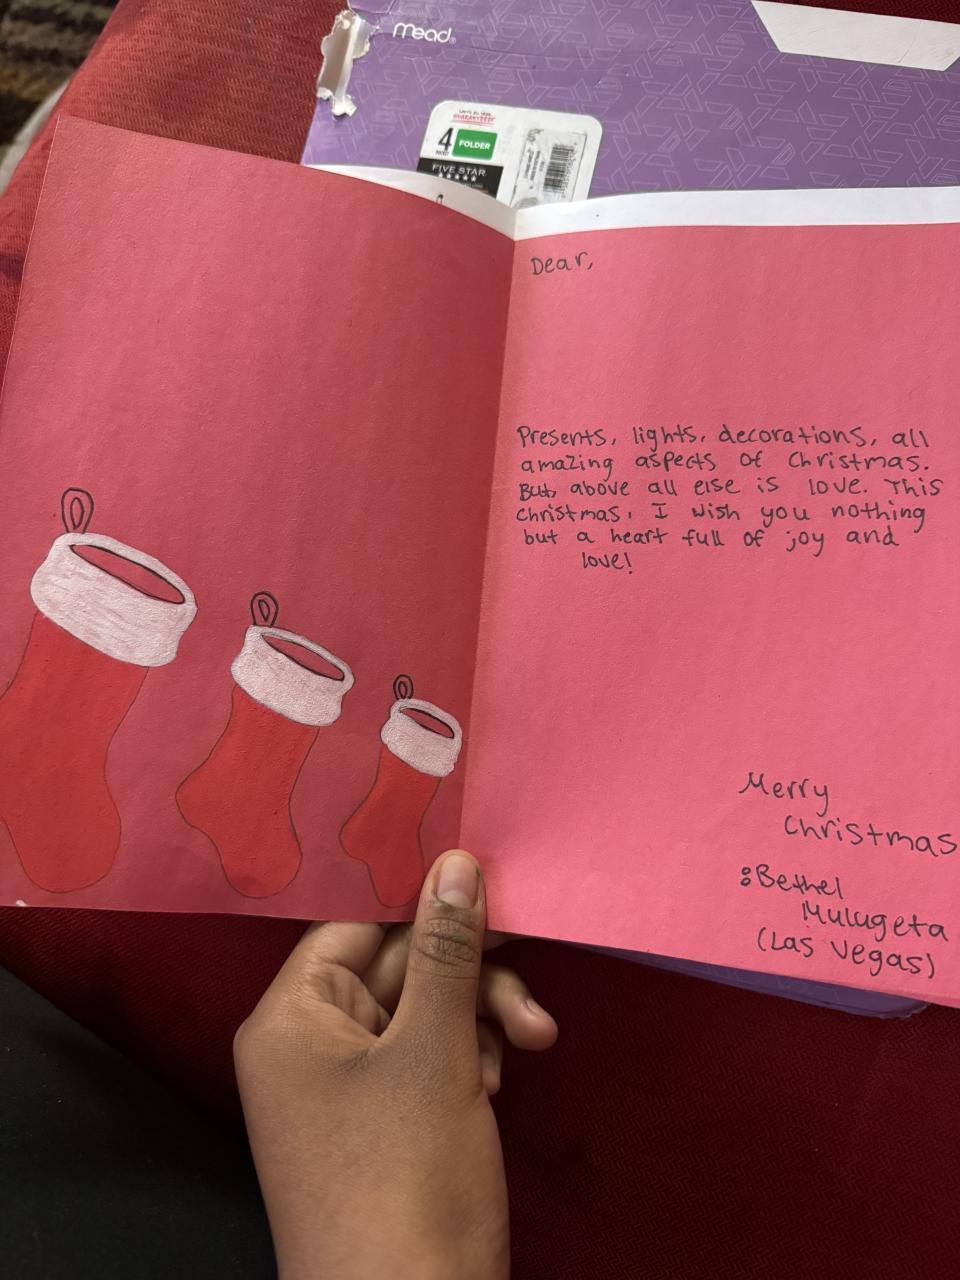 Mead
GUARANTEED!
4
FOLDER
FIVE STAR
Dear,
Presents, lights, decorations, all
amazing aspects of Christmas.
But, above all else is love. This
Christmas, I wish you nothing
but a heart full of joy and
love!
Merry
Christmas
:Bethel
Mulugeta
(Las Vegas)